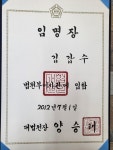 임명장
김갑수
법원부이사관에 임함
2012년 7월 1일
대법원장 양승태